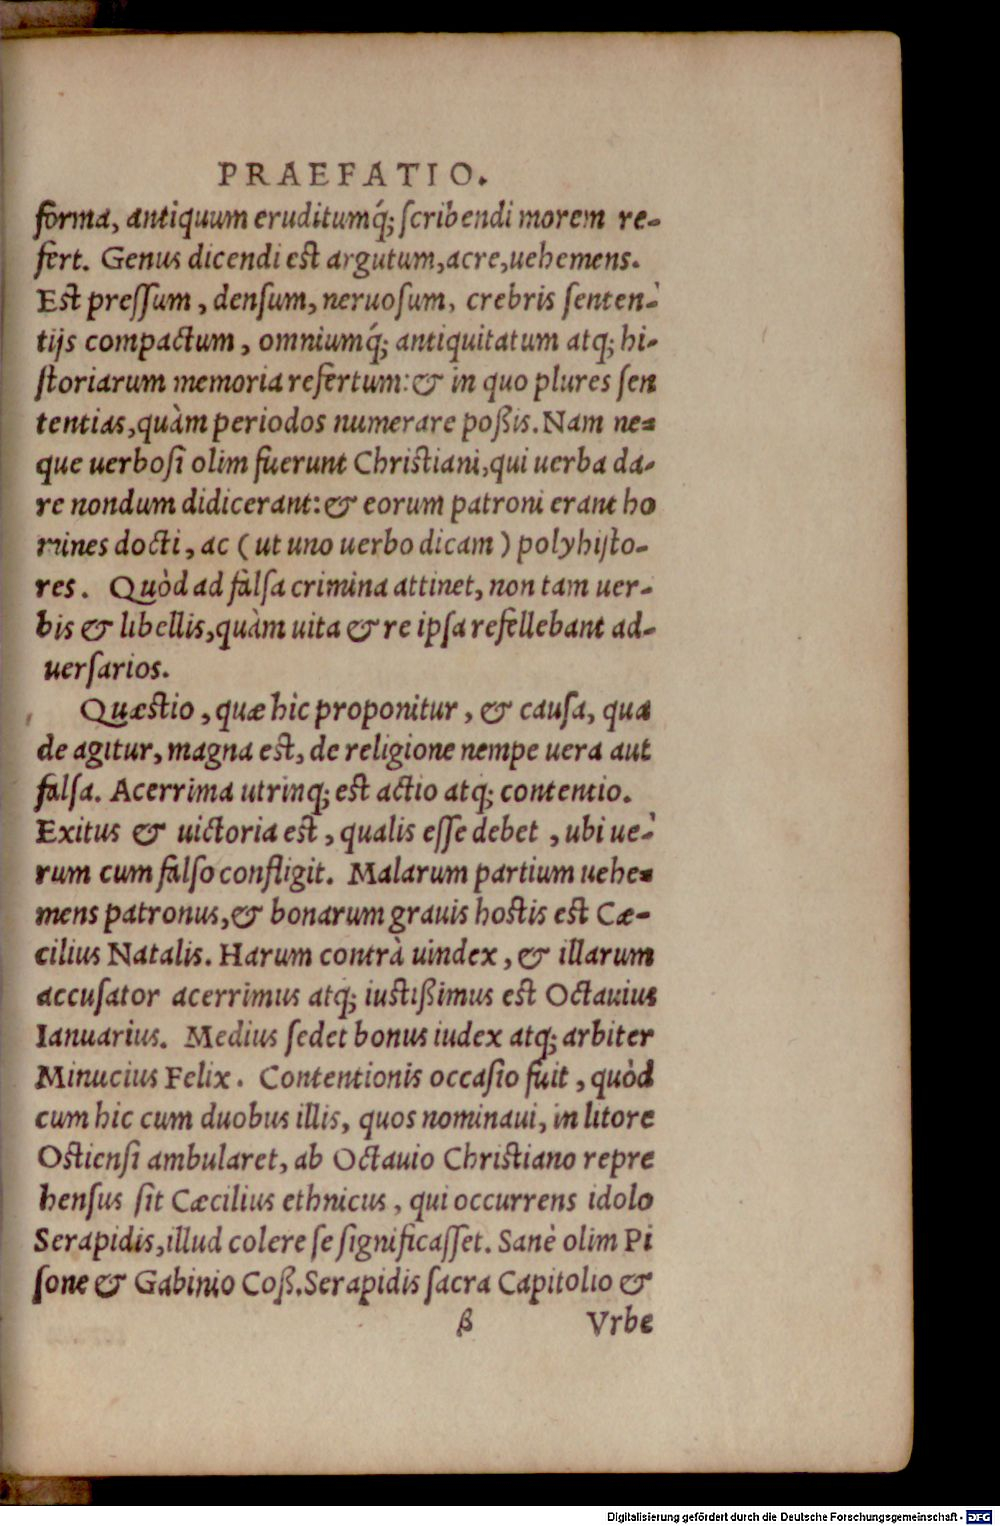 PRAEFATIO.
forma, antiquum eruditumq́; ſcribendi morem re-
fert. Genus dicendi est argutum, acre, uehemens.
Est preſſum, denſum, neruoſum, crebris ſenten-
tijs compactum, omniumq́; antiquitatum atq; hi-
ſtoriarum memoria refertum: & in quo plures ſen
tentias, quàm periodos numerare poßis. Nam ne-
que uerboſi olim fuerunt Christiani, qui uerba da-
re nondum didicerant: & eorum patroni erant ho
mines docti, ac (ut uno uerbo dicam) polyhiſto-
res. Quòd ad falſa crimina attinet, non tam uer-
bis & libellis, quàm uita & re ipſa refellebant ad-
uerſarios.
Quæstio, quæ hic proponitur, & cauſa, qua
de agitur, magna est, de religione nempe uera aut
falſa. Acerrima utrinq; est actio atq; contentio.
Exitus & uictoria est, qualis eſſe debet, ubi ue-
rum cum falſo confligit. Malarum partium uehe-
mens patronus, & bonarum grauis hostis est Cæ-
cilius Natalis. Harum contrà uindex, & illarum
accuſator acerrimus atq; iustißimus est Octauius
Ianuarius. Medius ſedet bonus iudex atq; arbiter
Minucius Felix. Contentionis occaſio fuit, quòd
cum hic cum duobus illis, quos nominaui, in litore
Ostienſi ambularet, ab Octauio Christiano repre
henſus ſit Cæcilius ethnicus, qui occurrens idolo
Serapidis, illud colere ſe ſignificaſſet. Sanè olim Pi
ſone & Gabinio Coß. Serapidis ſacra Capitolio &
β Vrbe
Digitalisierung gefördert durch die Deutsche Forschungsgemeinschaft - DFG